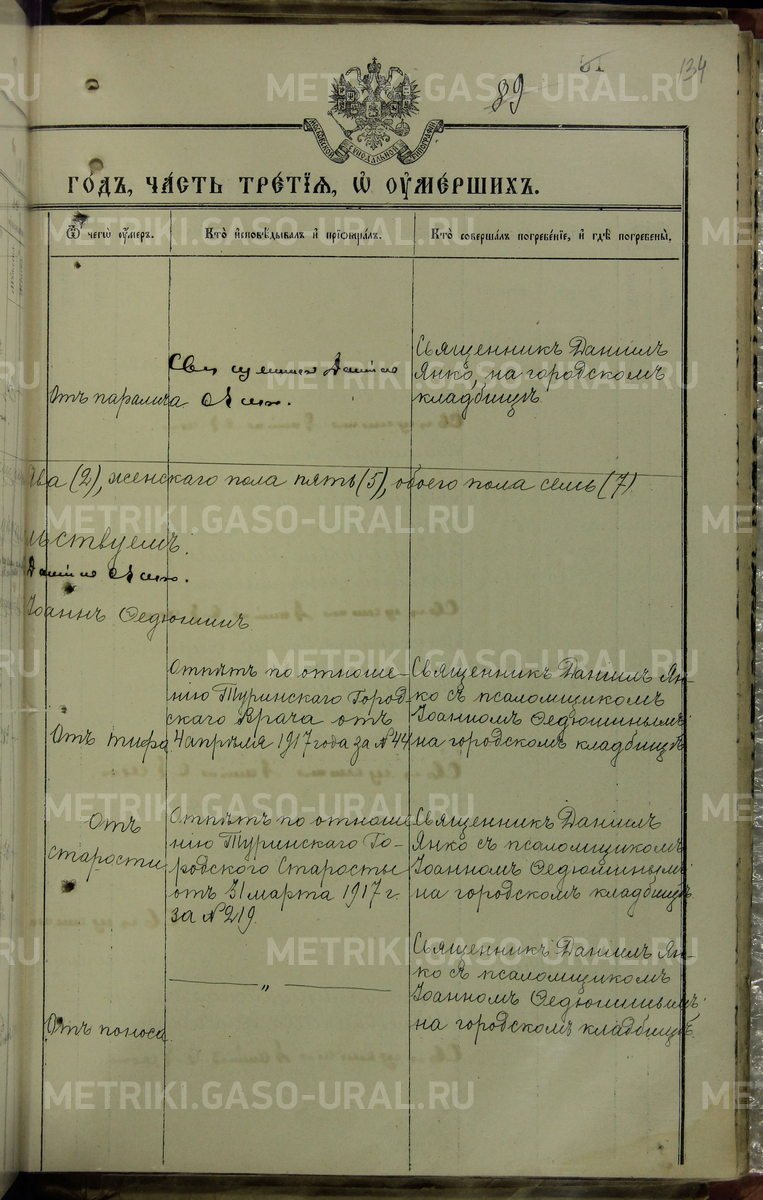 134
89
МОСКОВСКОЙ СѶНОДАЛЬНОЙ ТИПОГРАФІИ
ГО́ДЪ, ЧА́СТЬ ТРЕ́ТІѦ, Ѡ҆ ОУ҆МЕ́РШИХЪ.
Ѿ чегѡ̀ оу҆́меръ.
Кто̀ и҆сповѣ́дывалъ и҆ прїѡбща́лъ.
Кто̀ соверша́лъ погребе́нїе, и҆ гдѣ̀ погребены̀.
Отъ паралича.
Священникъ Даніилъ
Янко.
Священникъ Даніилъ
Янко, на городскомъ
кладбищѣ.
два (2), женскаго пола пять (5), обоего пола семь (7)
льствуемъ:
Даніилъ Янко.
Іоаннъ Федюшинъ
Отъ тифа
Отпѣтъ по отноше-
нію Туринскаго Город-
скаго Врача отъ
4 апрѣля 1917 года за №44
Священникъ Даніилъ Ян-
ко съ псаломщикомъ
Іоанномъ Федюшинымъ
на городскомъ кладбищѣ
Отъ
старости
Отпѣтъ по отноше
нію Туринскаго Го-
родского Старосты
отъ 31 марта 1917 г.
за №219
Священникъ Даніилъ
Янко съ псаломщикомъ
Іоанномъ Федюшинымъ
на городскомъ кладбищѣ
Отъ поноса
— „ —
Священникъ Даніилъ Ян-
ко съ псаломщикомъ
Іоанномъ Федюшинымъ
на городскомъ кладбищѣ.
METRIKI.GASO-URAL.RU